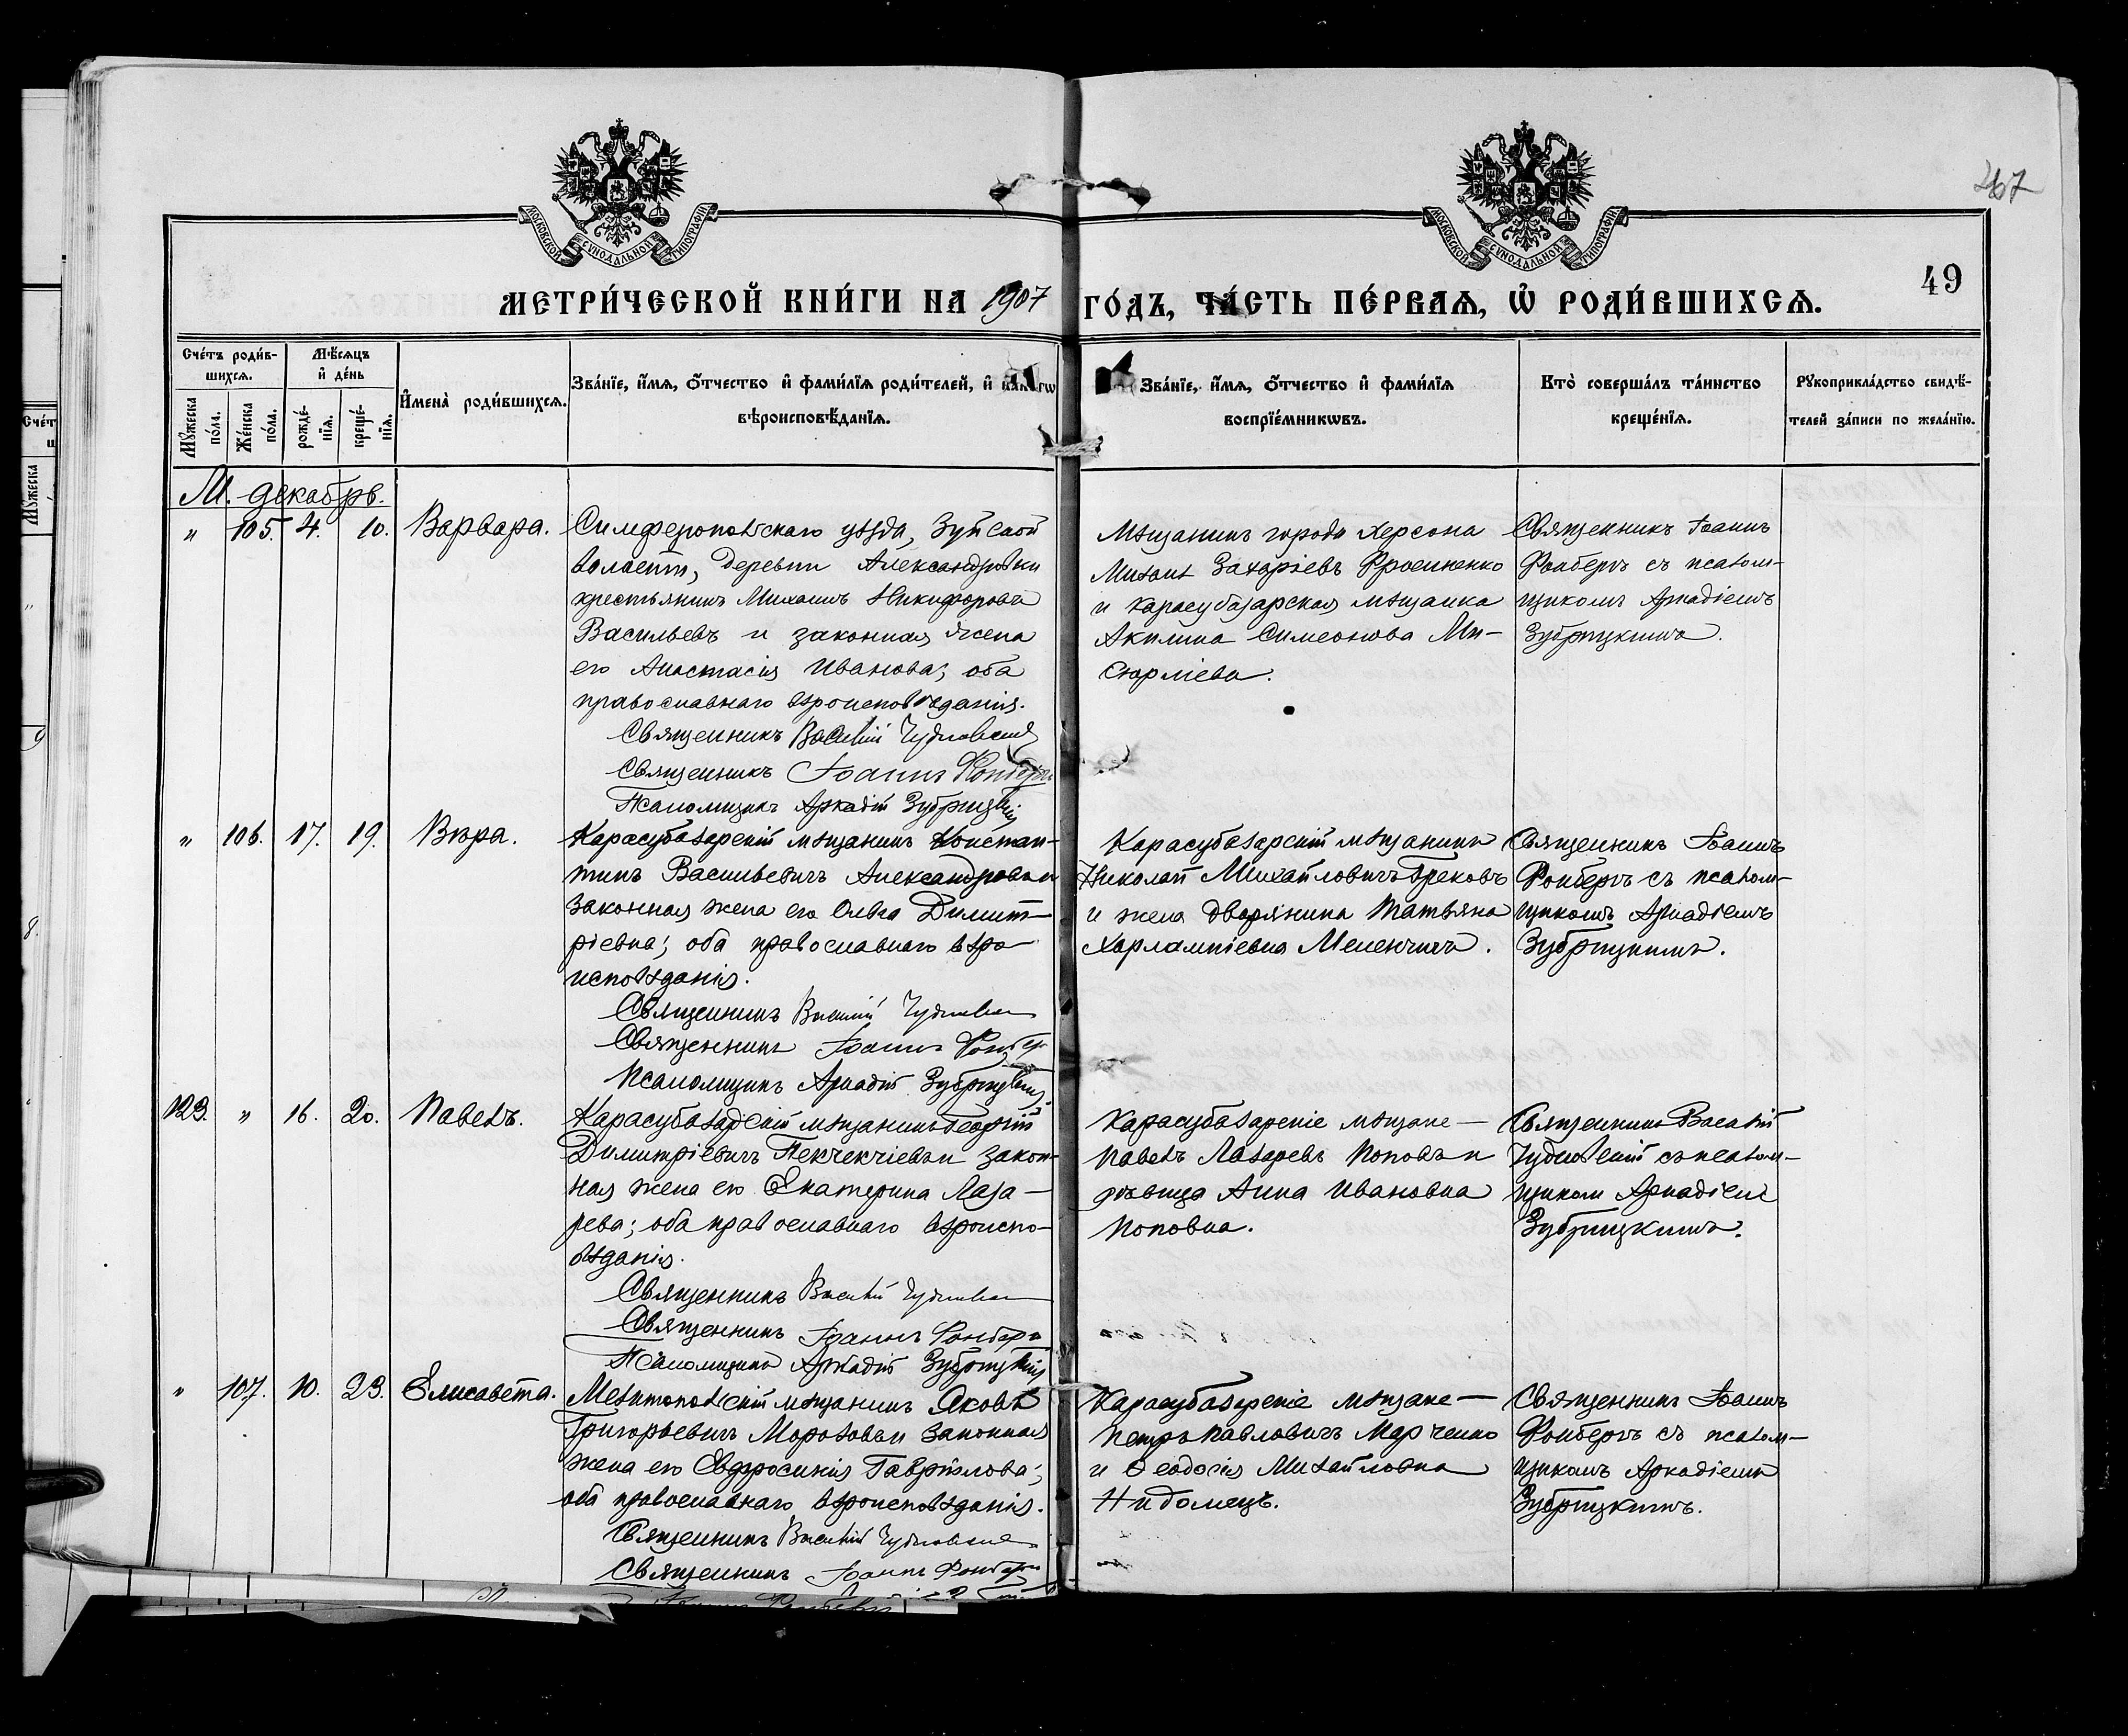 267
49
МОСКОВСКОЙ СУНОДАЛЬНОЙ ТИПОГРАФІИ
МОСКОВСКОЙ СУНОДАЛЬНОЙ ТИПОГРАФІИ
МЕТРИ́ЧЕСКОЙ КНИ́ГИ НА 1907 ГО́ДЪ, ЧА́СТЬ ПЕ́РВАѦ, Ѡ РОДИ́ВШИХСѦ.
Сче́тъ роди́в-
шихсѧ.
Мꙋжеска по́ла.
Же́нска по́ла.
Мѣ́сѧцъ
и де́нь
рожде́-
нїѧ.
креще́-
нїѧ.
Имена̀ роди́вшихсѧ.
Зва́нїе, и́мѧ, о́тчество и фами́лїѧ роди́телей, и
вѣроисповѣ́данїѧ.
Зва́нїе, и́мѧ, о́тчество и фами́лїѧ
воспрїе́мникѡвъ.
Кто̀ соверша́лъ та́инство
креще́нїѧ.
Рꙋкоприкла́дство свидѣ́-
телей за́писи по жела́нїю.
М. декабрь.
" 105. 4. 10. Варвара.
Симферопольскаго уѣзда, Зуйской
волости, деревни Александровки
крестьянинъ Михаилъ Никифоровъ
Васильевъ и законная жена
его Анастасія Иванова; оба
православнаго вѣроисповѣданія.
Священникъ Василій Чудновскій
Священникъ Іоаннъ Фонбергъ
Псаломщикъ Аркадій Зубрицкій
Мѣщанинъ города Херсона
Михаилъ Захаріевъ
и карасубазарская мѣщанка
Акилина Симеонова Ми-
сюрліева.
Священникъ Іоаннъ
Фонбергъ съ псалом-
щикомъ Аркадіемъ
Зубрицкимъ.
" 106. 17. 19. Вѣра.
Карасубазарскій мѣщанинъ Констан-
тинъ Васильевичъ Александровъ и
законная жена его Ольга Димит-
ріевна; оба православнаго вѣро-
исповѣданія.
Священникъ Василій Чудновскій
Священникъ Іоаннъ Фонбергъ
Псаломщикъ Аркадій Зубрицкій
Карасубазарскій мѣщанинъ
Николай Михайловичъ Грековъ
и жена дворянина Татьяна
Харлампіевна Меленчичъ.
Священникъ Іоаннъ
Фонбергъ съ псалом-
щикомъ Аркадіемъ
Зубрицкимъ.
123. " 16. 20. Павелъ.
Карасубазарскій мѣщанинъ Георгій
Димитріевичъ Пекчекчіевъ и закон-
ная жена его Екатерина Лаза-
рева; оба православнаго вѣроиспо-
вѣданія.
Священникъ Василій Чудновскій
Священникъ Іоаннъ Фонбергъ
Псаломщикъ Аркадій Зубрицкій
Карасубазарскіе мѣщане —
Павелъ Лазаревъ Поповъ и
дѣвица Анна Ивановна
Попова.
Священникъ Василій
Чудновскій съ псалом-
щиком Аркадіем
Зубрицкимъ.
" 107. 10. 23. Елисавета.
Мелитопольскій мѣщанинъ Яковъ
Григорьевичъ Морозовъ и законная
жена его Евфросинія Гавріилова;
оба православнаго вѣроисповѣданія.
Священникъ Василій Чудновскій
Священникъ Іоаннъ Фонбергъ
Карасубазарскіе мѣщане —
Петръ Павловичъ Марченко
и Ѳеодосія Михайловна
Нидомецъ.
Священникъ Іоаннъ
Фонбергъ съ псалом-
щикомъ Аркадіемъ
Зубрицкимъ.